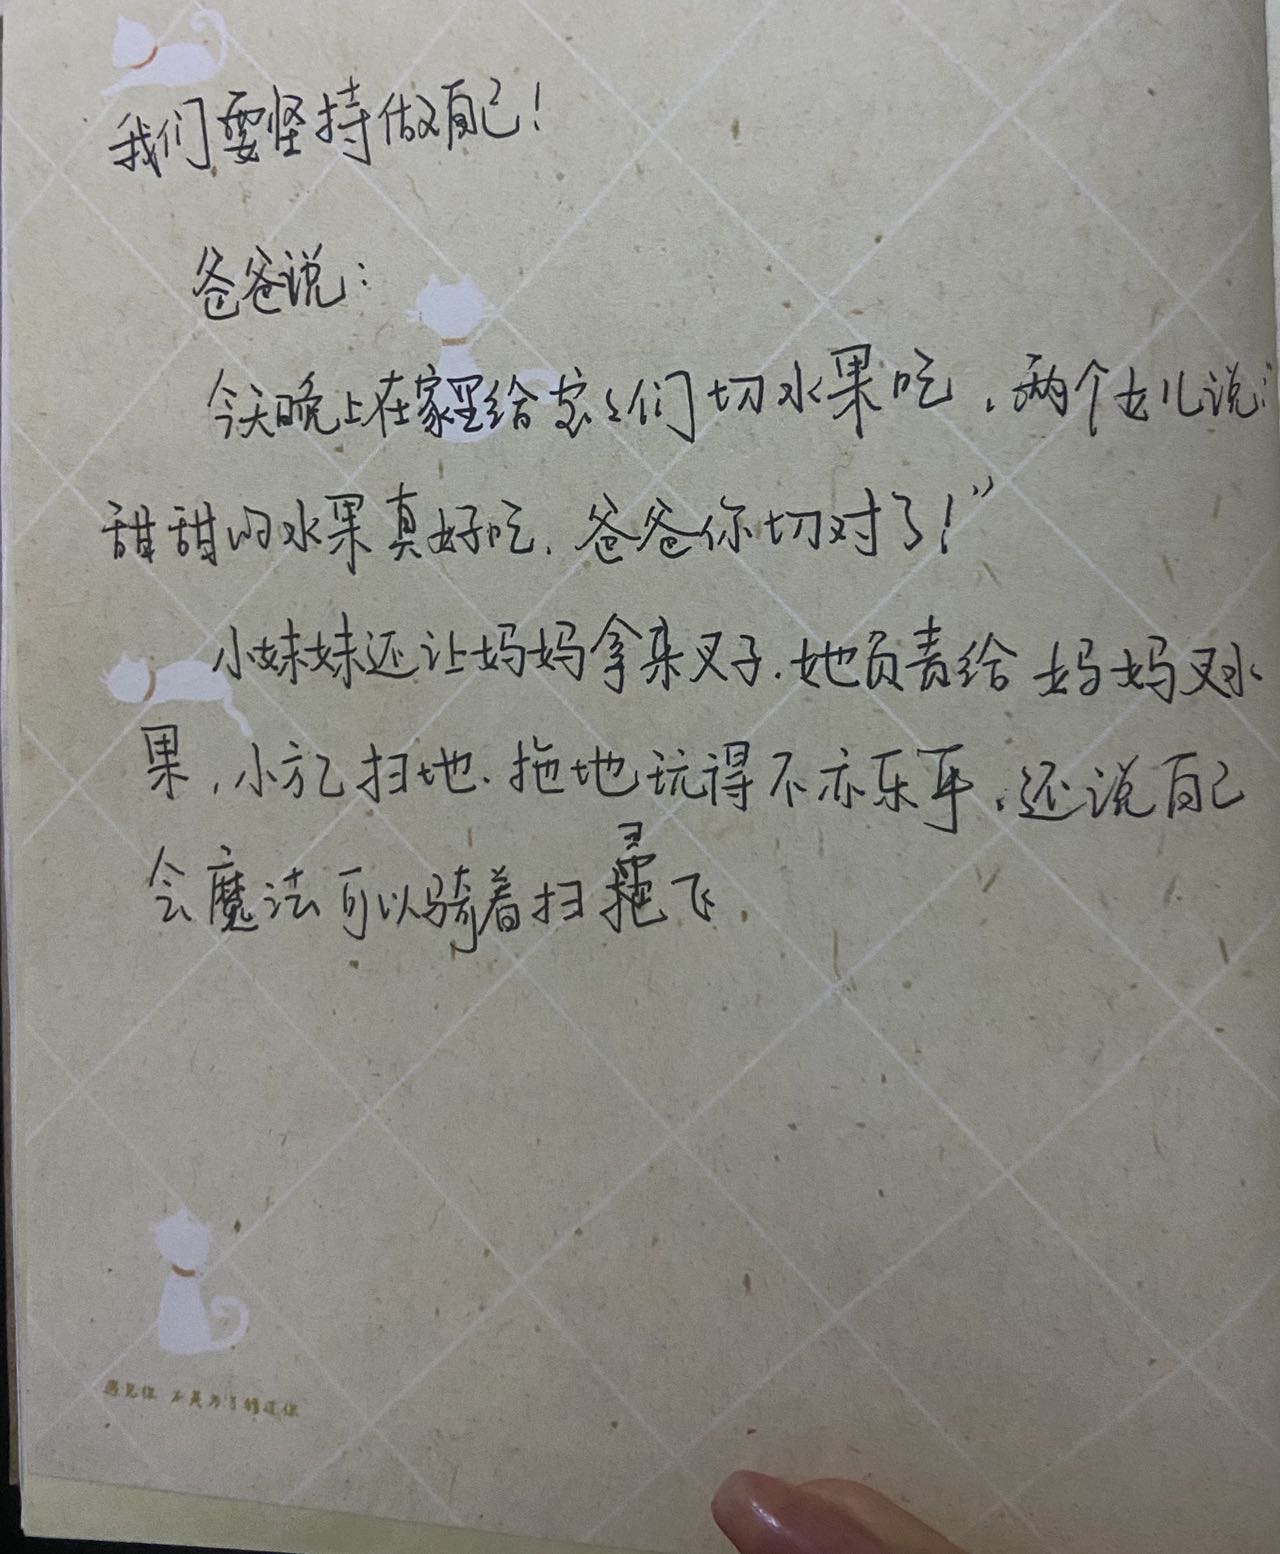 我们要坚持做自己！
爸爸说：
今天晚上在家里给家人们切水果吃，两个女儿说：“
甜甜的水果真好吃，爸爸你切对了！”
小妹妹还让妈妈拿来叉子，她负责给妈妈叉水
果，小方已扫地、拖地玩得不亦乐乎，还说自己
会魔法可以骑着扫飞
遇见你 不是为了错过你